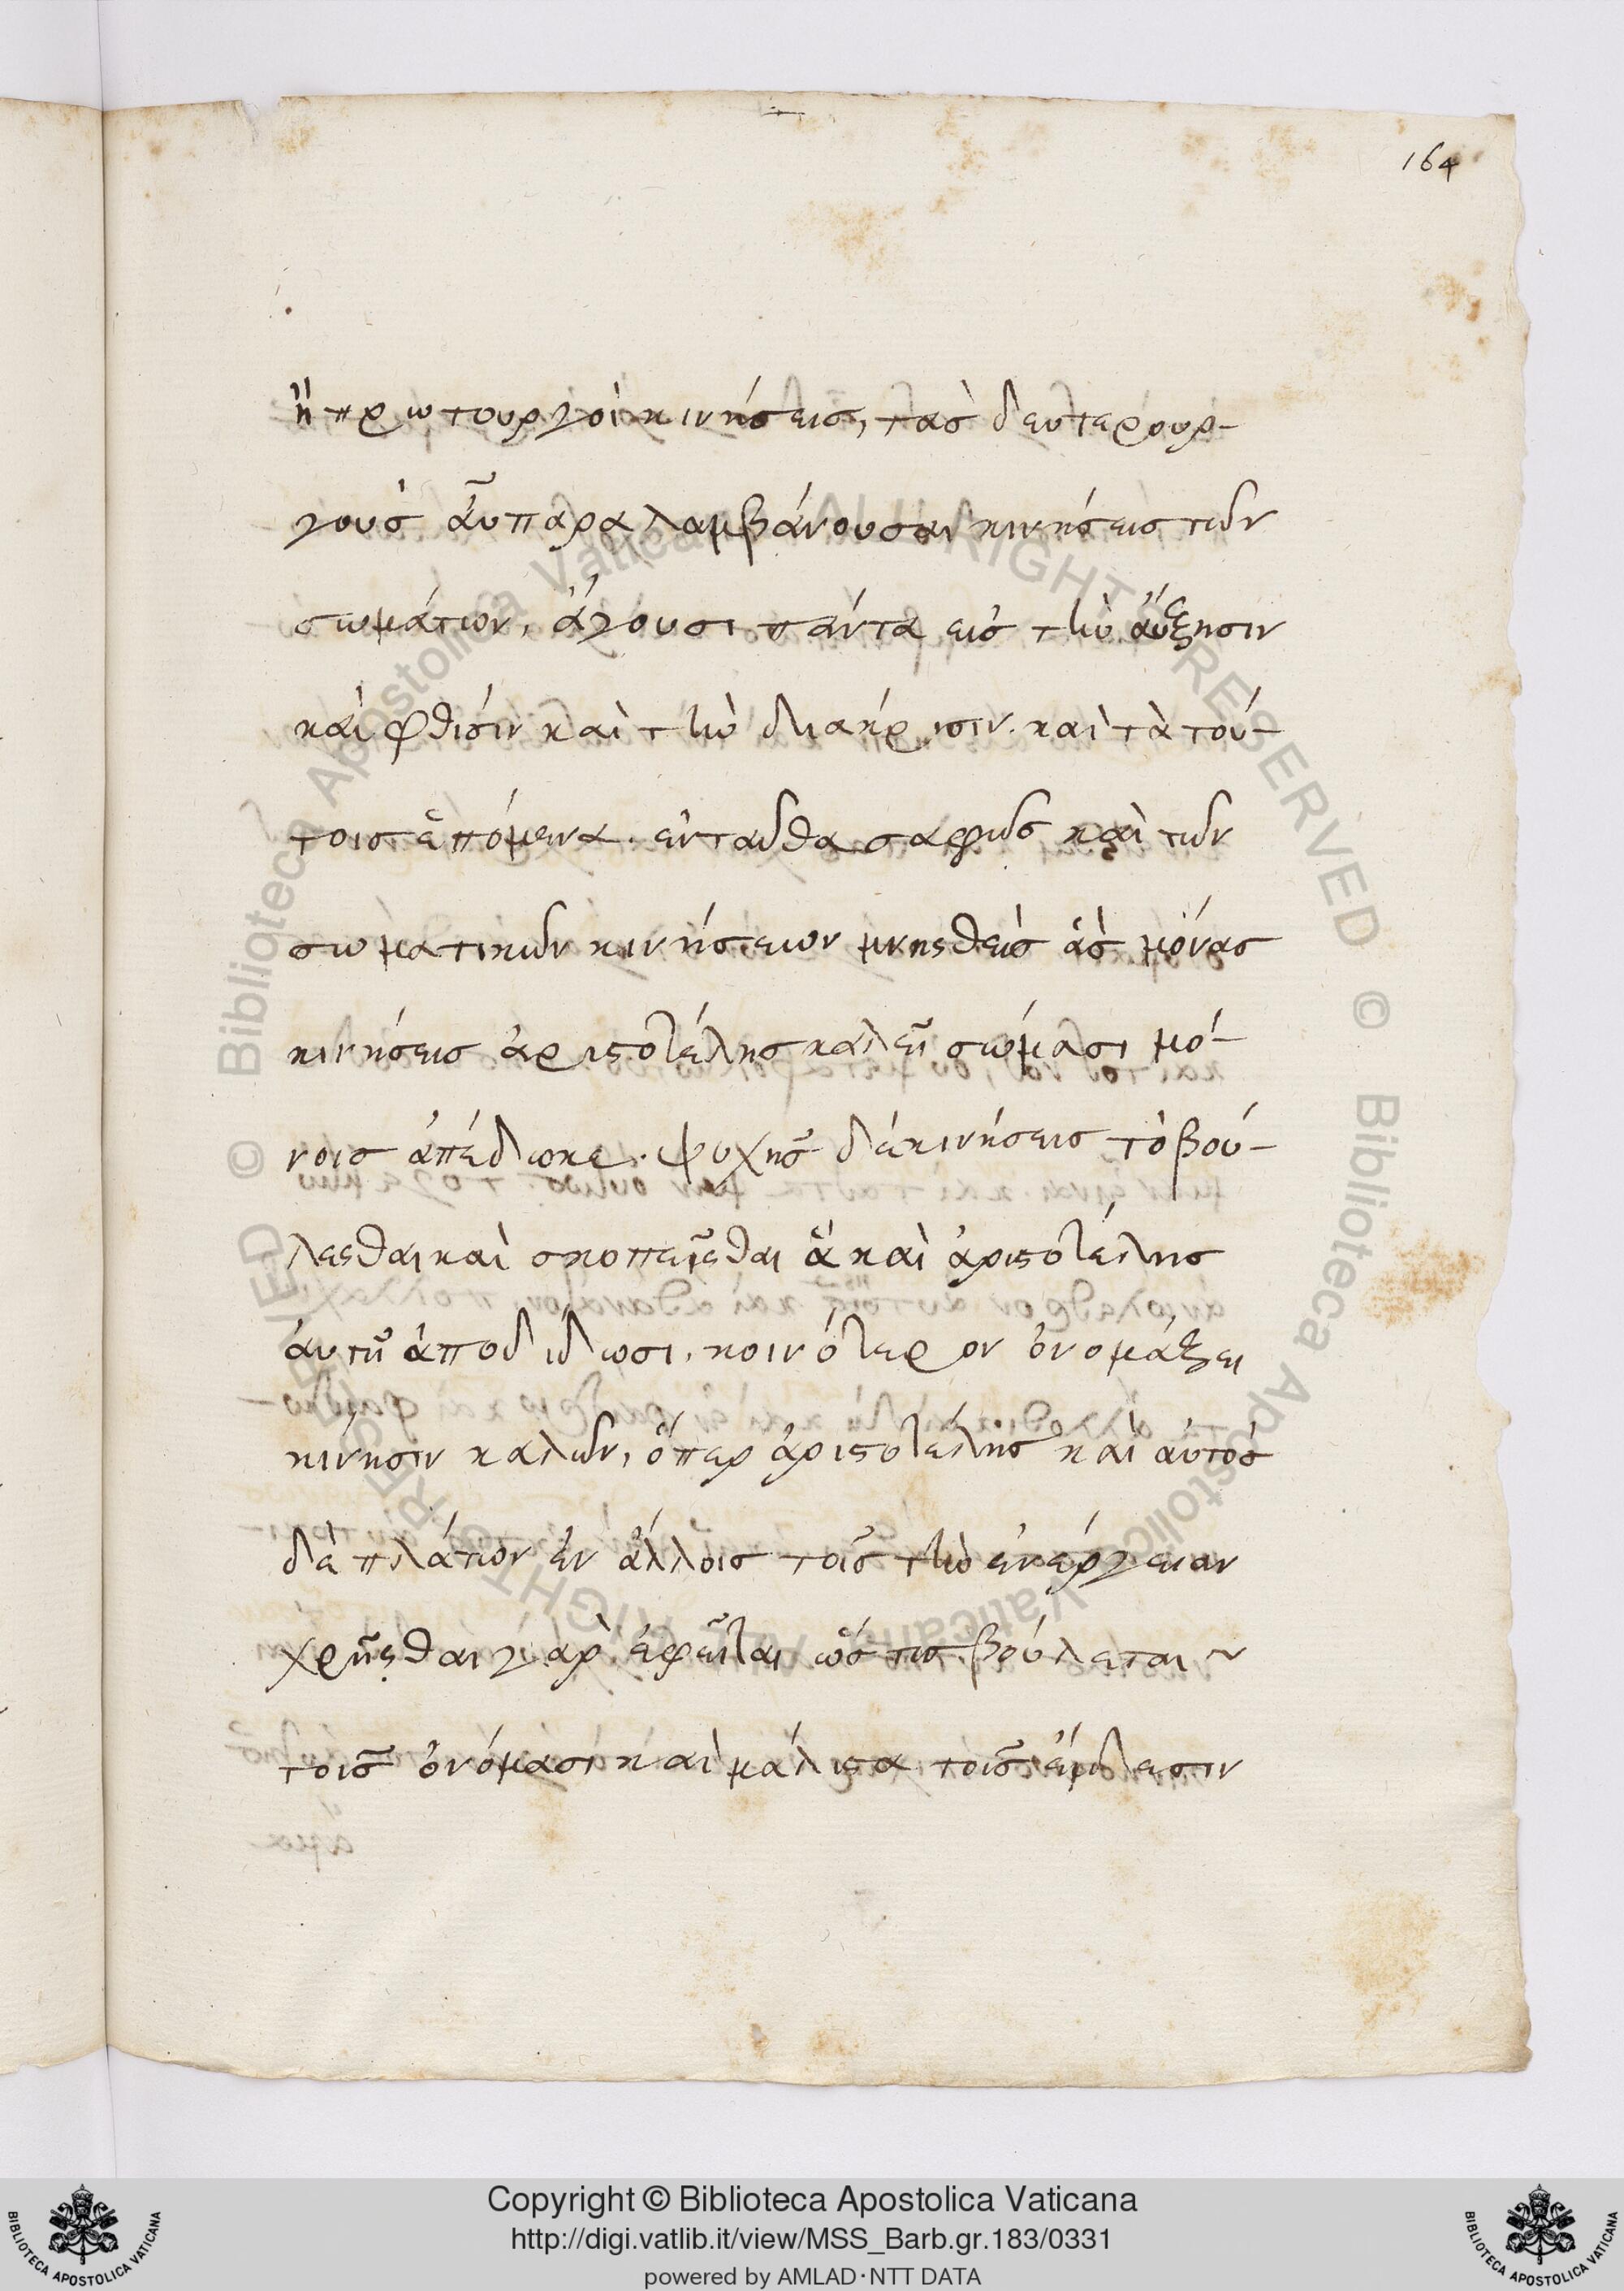 164
ἢ πρωτουργοὶ κινήσεις, τὰς δευτερουρ-
γοὺς αὖ παραλαμβάνουσαι κινήσεις τῶν
σωμάτων, ἄγουσι πάντα εἰς τὴν αὔξησιν
καὶ φθίσιν καὶ τὴν διακρισιν. καὶ τὰ τού-
τοις ἑπόμενα. ἐνταῦθα σαφῶς καὶ τῶν
σωματικῶν κινήσεων μνησθεὶς ἃς μόνας
κινήσεις ἀριστοτέλης καλεῖ σώμασι μό-
νοις ἀπέδωκε. ψυχῆς δὲ κινήσεις τὸ βού-
λεσθαι καὶ σκοπεῖσθαι ἃ καὶ ἀριστοτέλης
αὐτῇ ἀποδίδωσι. κοινότερον ὀνομάζει
κίνησιν καλῶν, ὅπερ ἀριστοτέλης καὶ αὐτὸς
δὲ πλάτων ἐν ἄλλοις τοῖς τὴν ἐνέργειαν
χρῆσθαι γὰρ ἐφεῖται ὥς τις βούλεται ~
τοῖς ὀνόμασι καὶ μάλιστα τοῖς
Copyright © Biblioteca Apostolica Vaticana
http://digi.vatlib.it/view/MSS_Barb.gr.183/0331
powered by AMLAD·NTT DATA
BIBLIOTECA APOSTOLICA VATICANA
BIBLIOTECA APOSTOLICA VATICANA